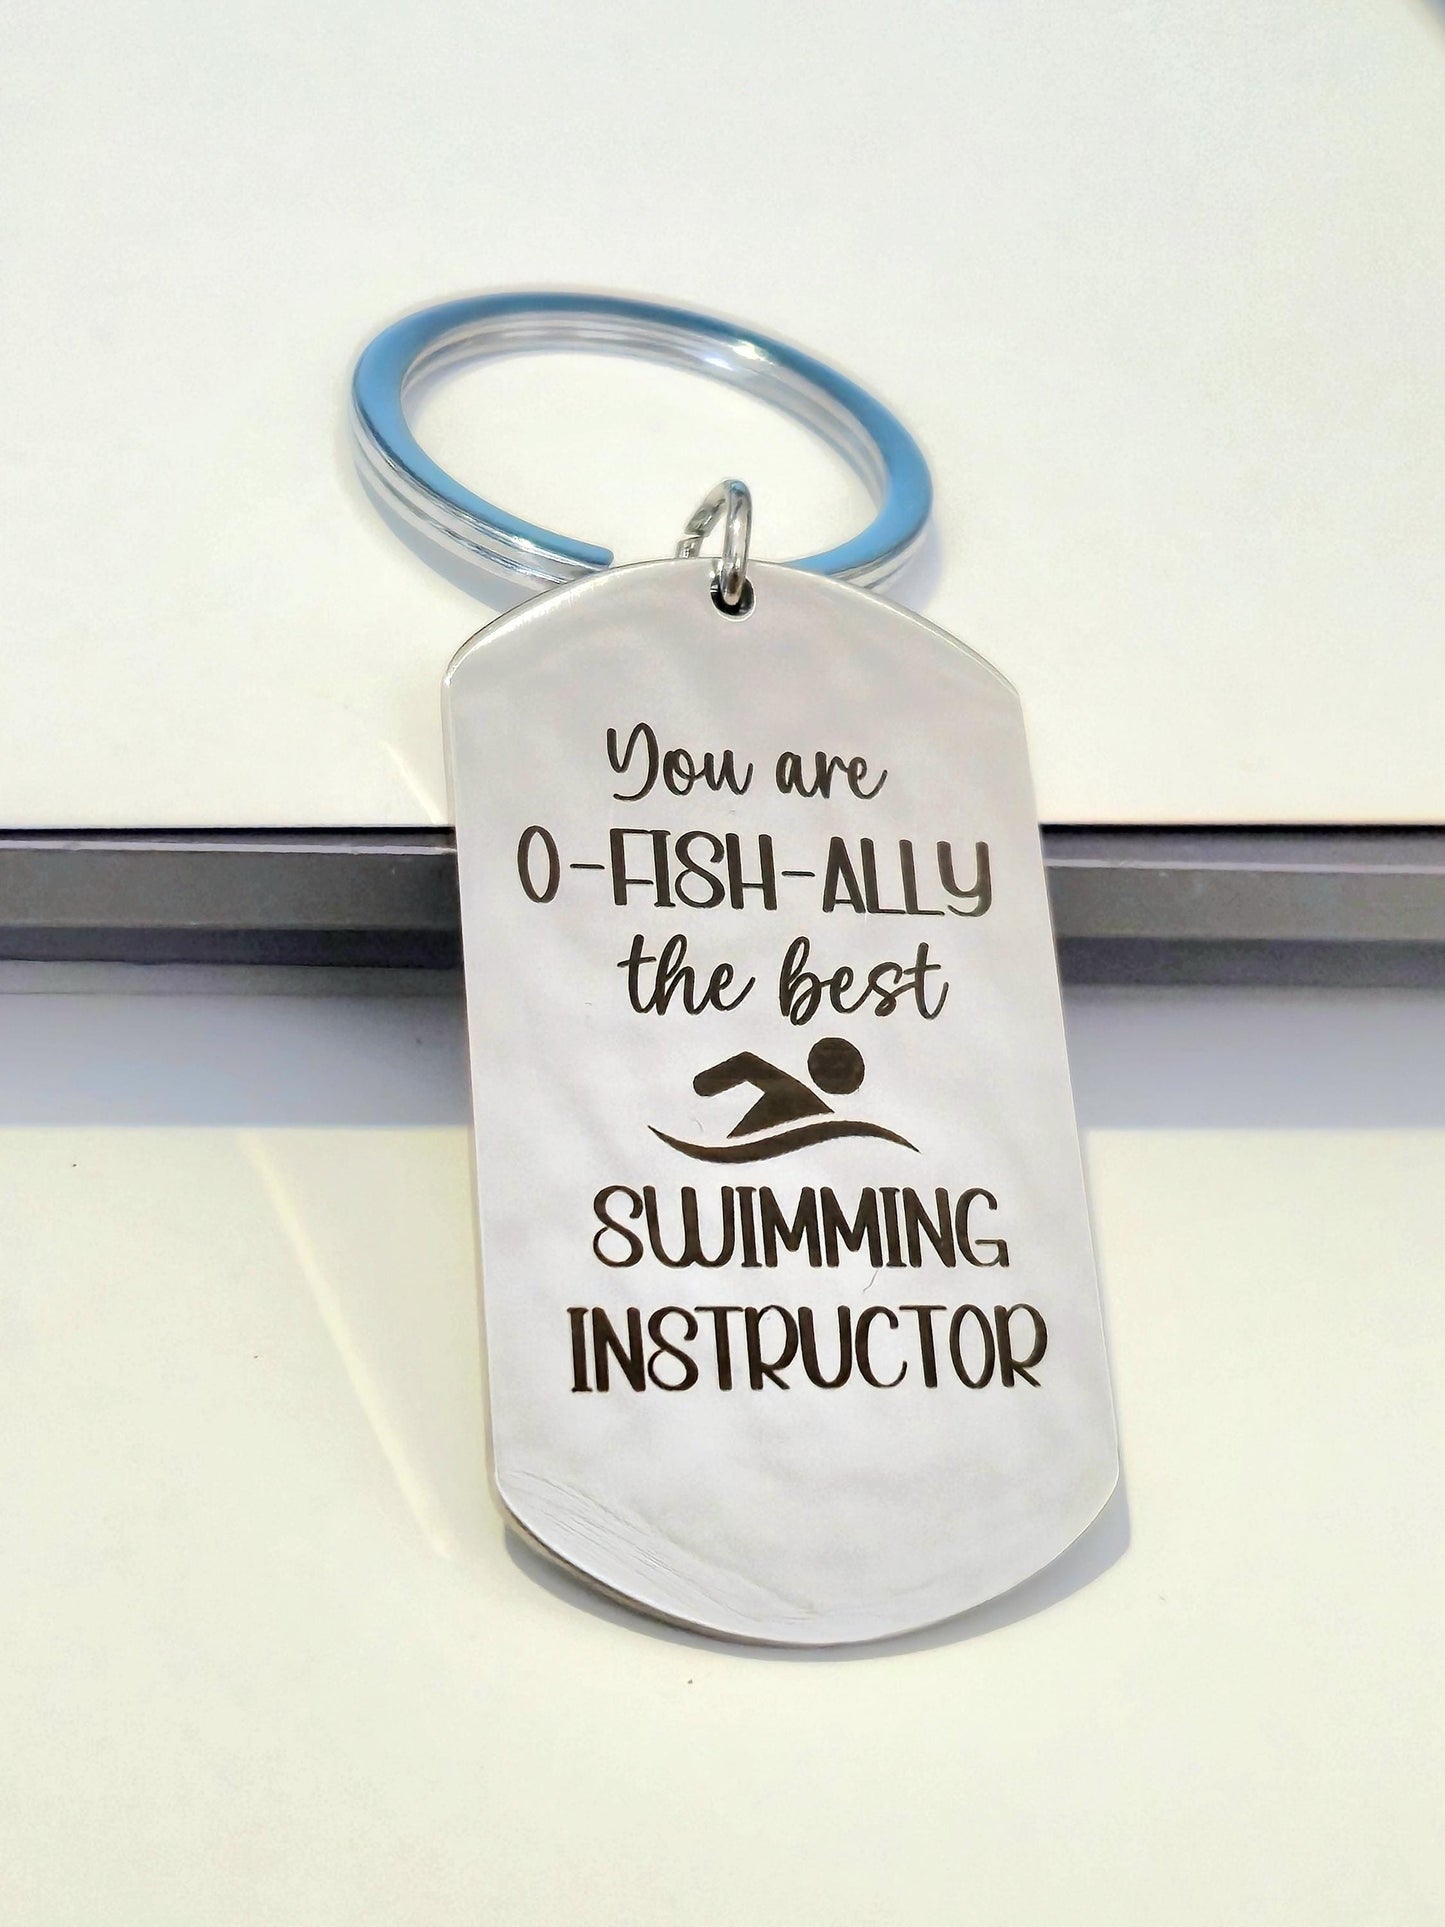 You are
O-FISH-ALLY
the best
SWIMMING
INSTRUCTOR